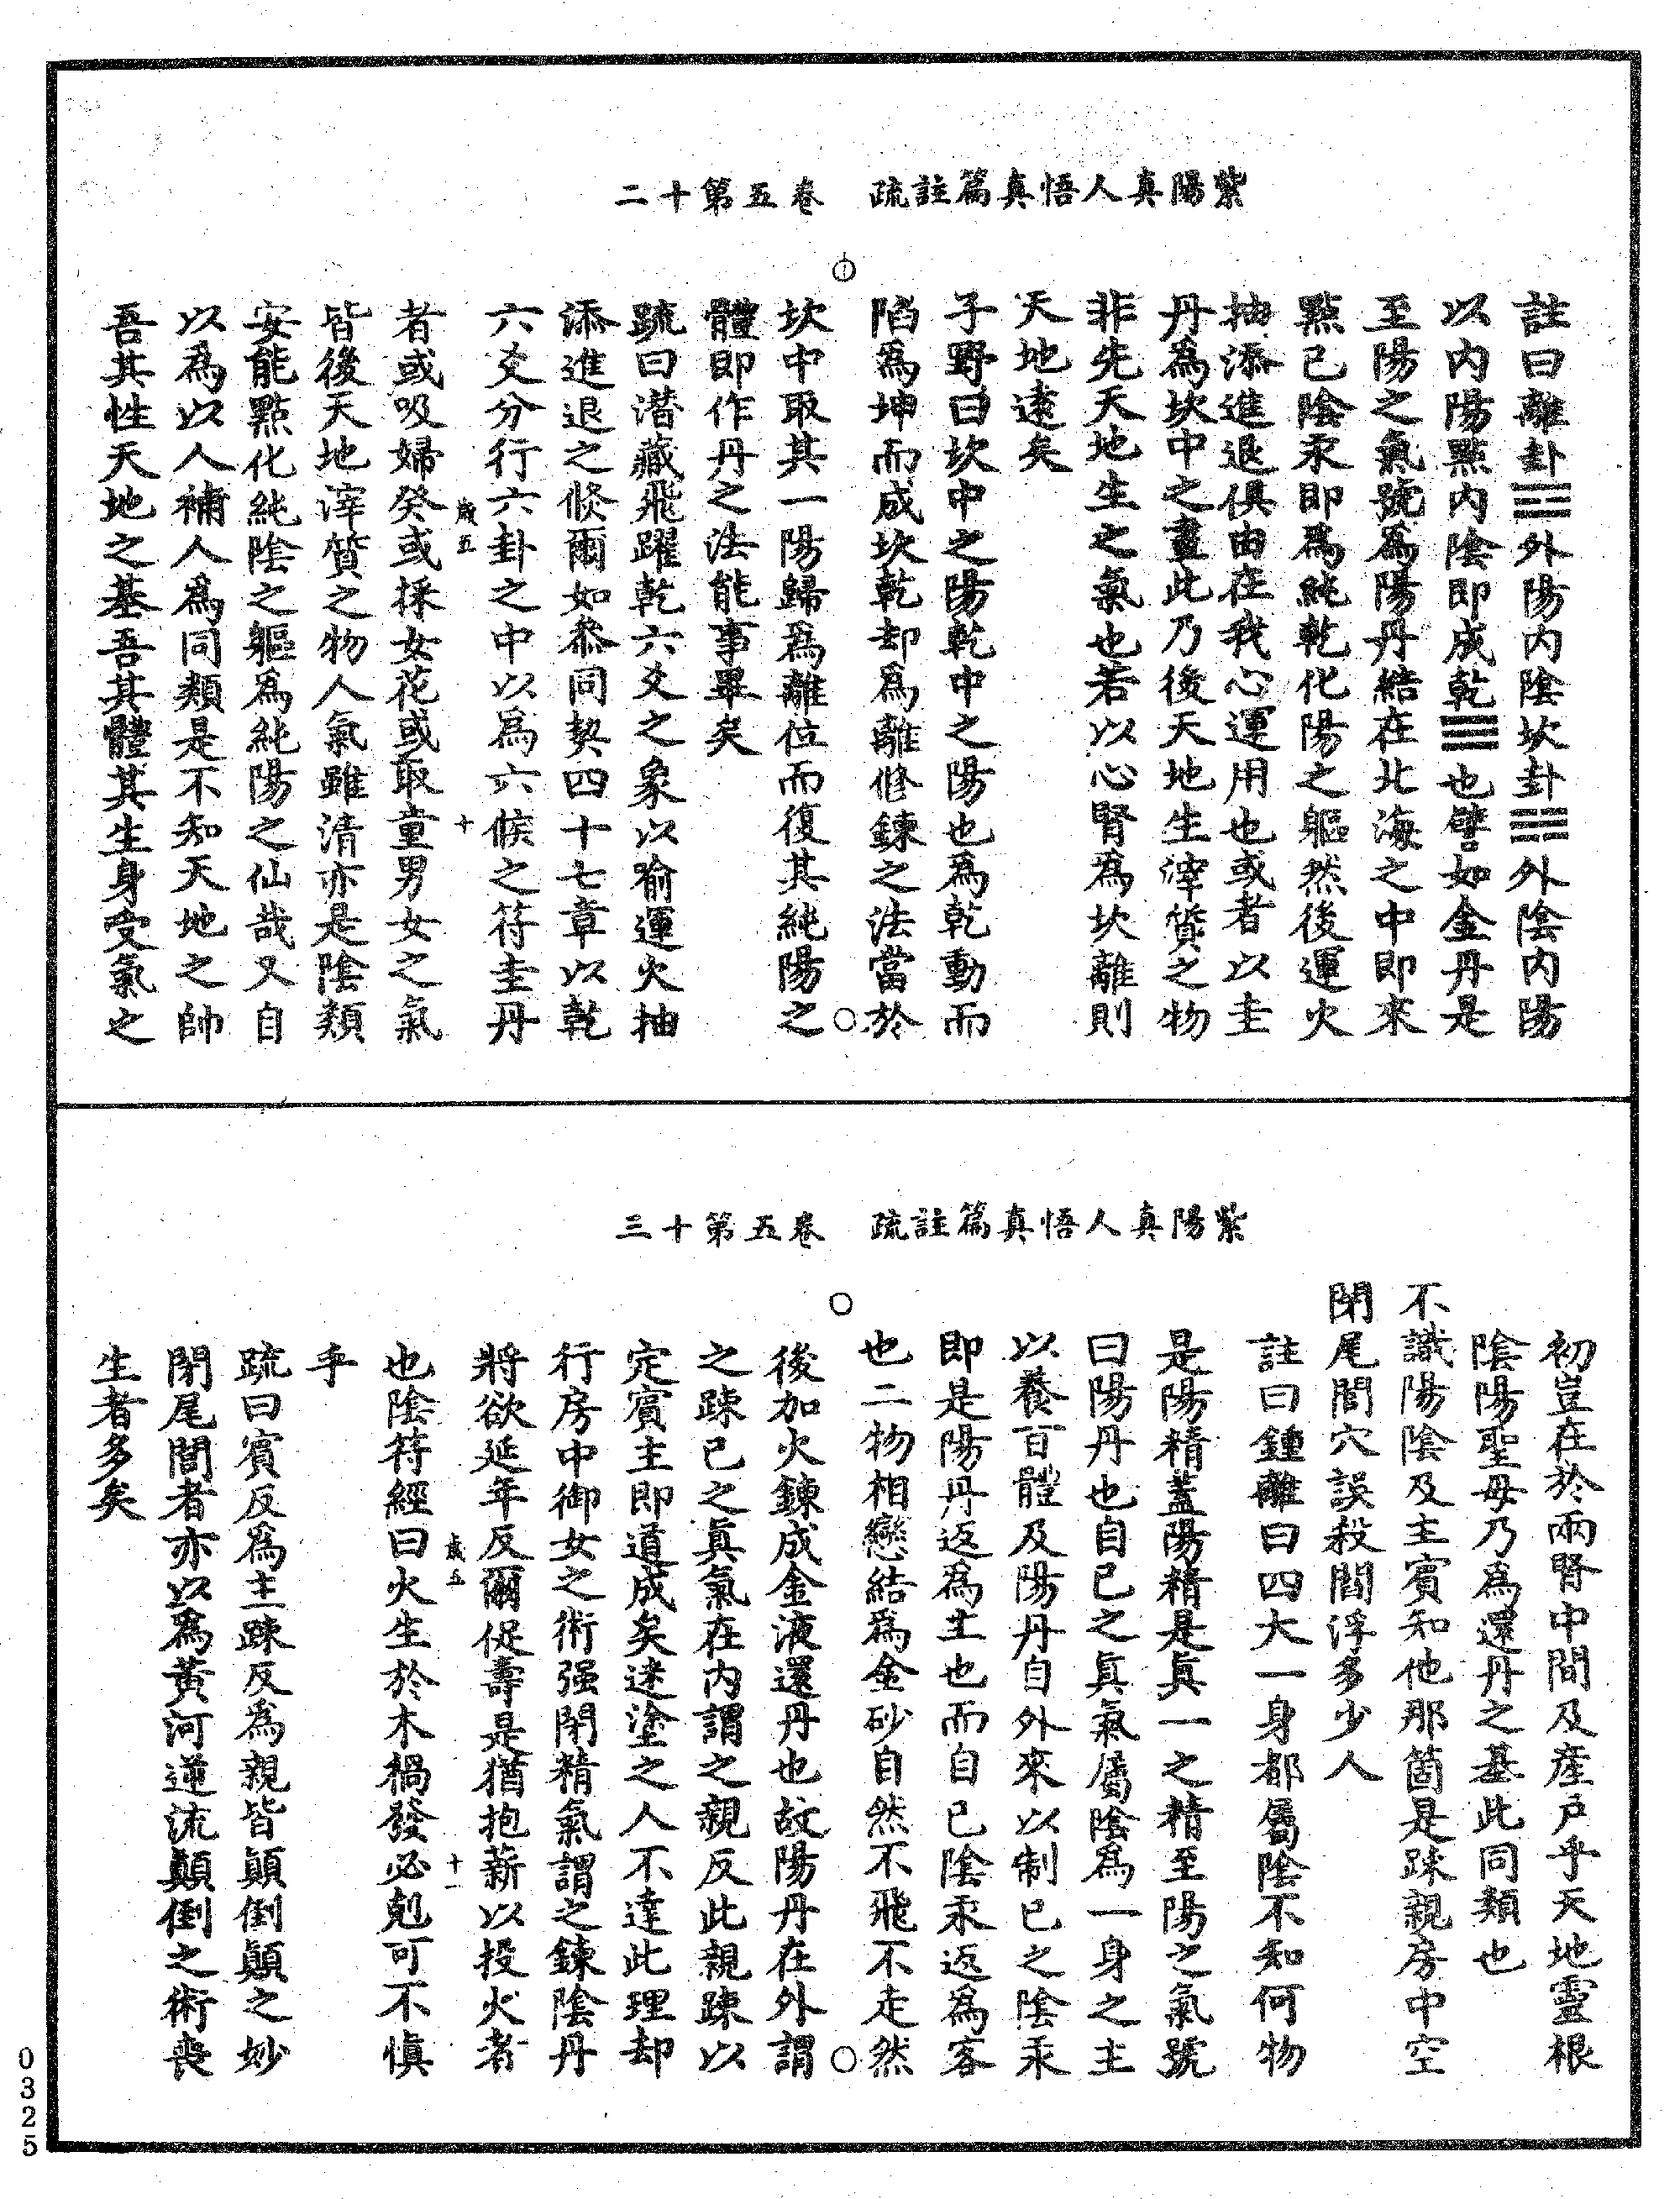 紫陽真人悟真篇註疏　卷五第十二
註曰離卦☲外陽内陰坎卦☵外陰内陽
以内陽點内陰即成乾☰也譬如金丹是
至陽之氣號為陽丹結在北海之中即來
點己陰汞即為純乾化陽之軀然後運火
抽添進退俱由在我心運用也或者以圭
丹為坎中之畫此乃後天地生滓質之物
非先天地生之氣也若以心腎為坎離則
天地遠矣
子野曰坎中之陽乾中之陽也為乾動而
陷為坤而成坎乾却為離修鍊之法當於
坎中取其一陽歸為離位而復其純陽之
體即作丹之法能事畢矣
疏曰潜藏飛躍乾六爻之象以喻運火抽
添進退之倐爾如叅同契四十七章以乾
六爻分行六卦之中以為六候之符圭丹
歲五　十
者或吸婦癸或採女花或取童男女之氣
皆後天地滓質之物人氣雖清亦是陰類
安能點化純陰之軀為純陽之仙哉又自
以為以人補人為同類是不知天地之帥
吾其性天地之基吾其體其生身受氣之
紫陽真人悟真篇註疏　卷五第十三
初豈在於兩腎中間及產戶乎天地靈根
陰陽聖母乃為還丹之基此同類也
不識陽陰及主賓知他那箇是踈親房中空
閉尾閭穴誤殺閻浮多少人
註曰鍾離曰四大一身都屬陰不知何物
是陽精蓋陽精是真一之精至陽之氣號
曰陽丹也自己之真氣屬陰為一身之主
以養百體及陽丹自外來以制己之陰汞
即是陽丹返為主也而自己陰汞返為客
也二物相戀結為金砂自然不飛不走然
後加火鍊成金液還丹也故陽丹在外謂
之踈己之真氣在内謂之親反此親踈以
定賓主即道成矣迷塗之人不達此理却
行房中御女之術强閉精氣謂之鍊陰丹
將欲延年反爾促壽是猶抱薪以投火者
歲五　十一
也陰符經曰火生於木禍發必剋可不慎
乎
疏曰賓反為主踈反為親皆顛倒顛之妙
閉尾閭者亦以為黃河逆流顛倒之術喪
生者多矣
0325